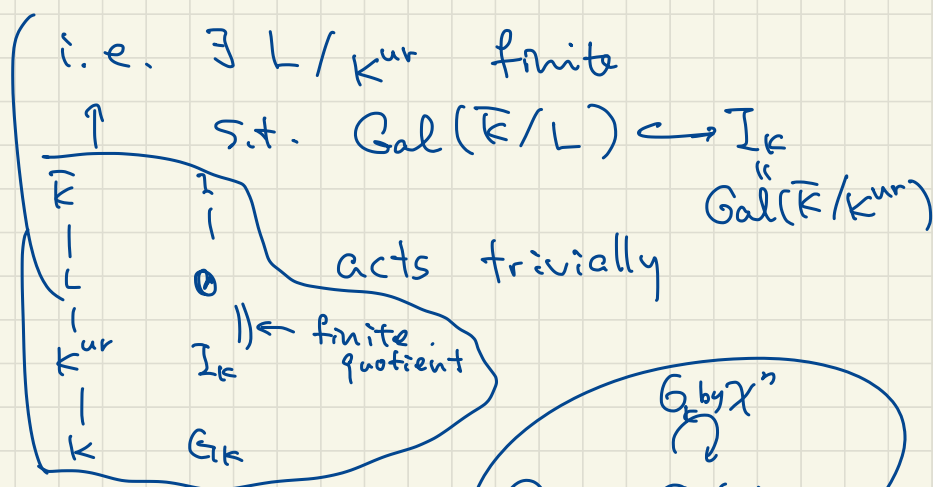 i.e. ∃ L/K^ur finite
s.t. Gal(K̄/L) ↪ I_K
=
Gal(K̄/K^ur)
acts trivially
K̄ 1
L
finite
quotient
K^ur I_K
K G_K
G_K by χ^n